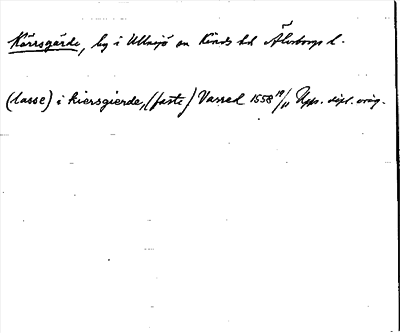 Kärrsgärde, by i Ullasjö sn Kinds hd Älvsborgs l.
(lasse) i kiersgierde, (faste) Varred 1558 19/11 Upps. dipl. orig.